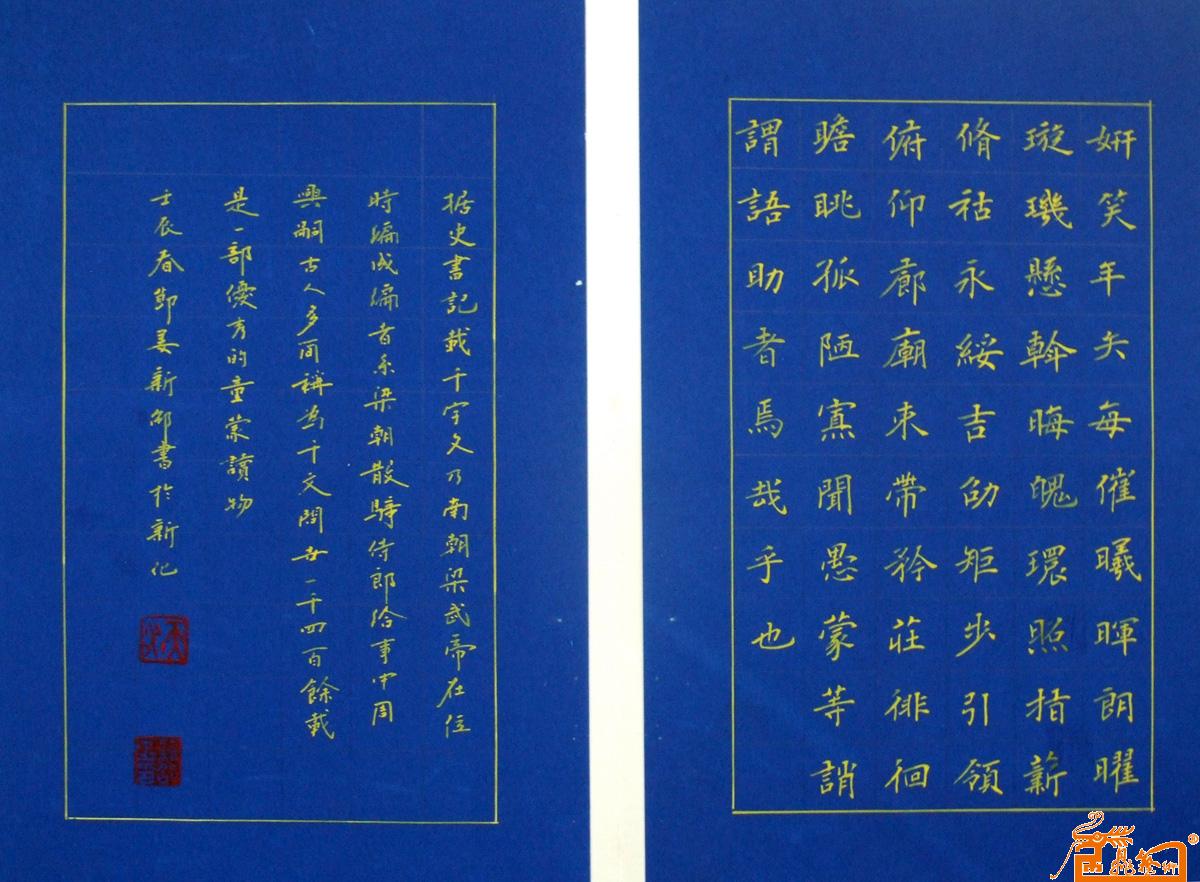 妍笑年矢每催曦暉朗曜
璇璣懸斡晦魄環照指薪
脩祜永綏吉劭矩步引領
俯仰廊廟束帶矜莊徘徊
瞻眺孤陋寡聞愚蒙等誚
謂語助者焉哉乎也
据史書記載千字文乃南朝梁武帝在位
時編成編者系梁朝散騎侍郎給事中周
興嗣古人多简稱為千文問世一千四百餘載
是一部優秀的童蒙讀物
壬辰春節姜新邵書於新化